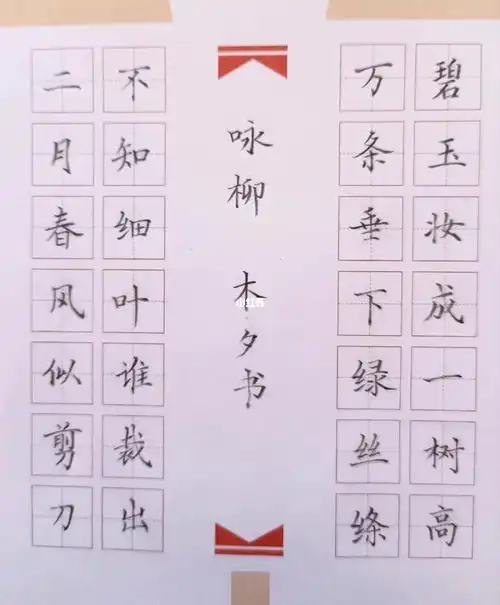 碧玉妆成一树高
万条垂下绿丝绦
咏柳 木夕书
不知细叶谁裁出
二月春风似剪刀